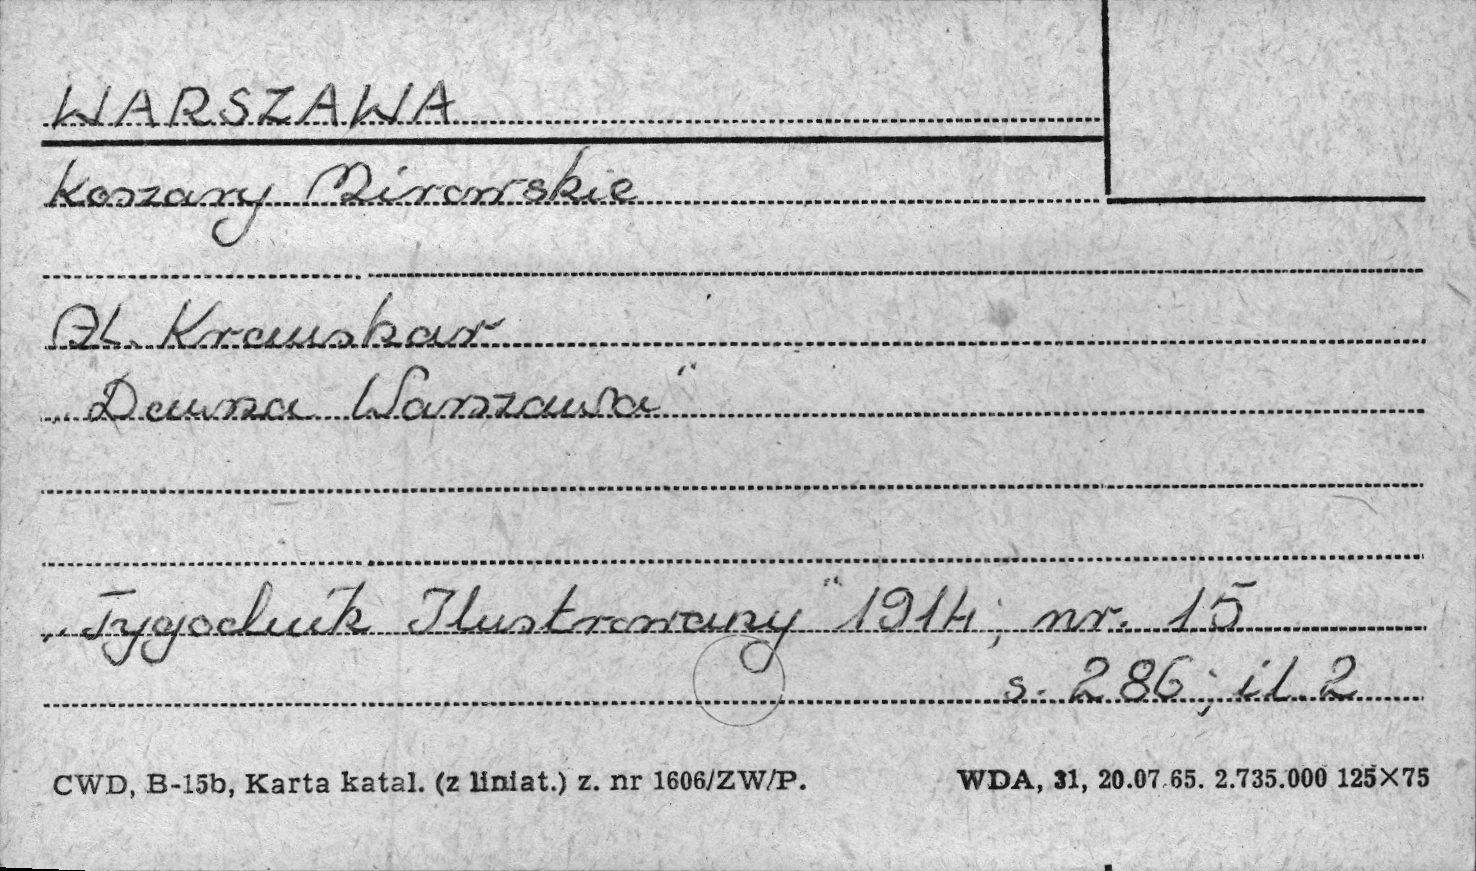 WARSZAWA
Koszary Mirowskie
Al. Kraushar
„Dawna Warszawa"
„Tygodnik Ilustrowany" 1914; nr. 15
s. 286; il. 2
CWD, B-15b, Karta katal. (z liniat.) z. nr 1606/ZW/P. WDA, 31, 20.07.65. 2.735.000 125×75